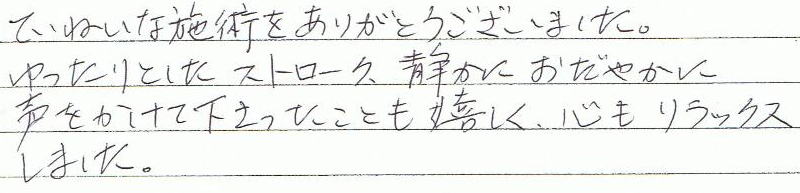 ていねいな施術をありがとうございました。
ゆったりとしたストローク、静かにおだやかに
声をかけて下さったことも嬉しく、心もリラックス
しました。